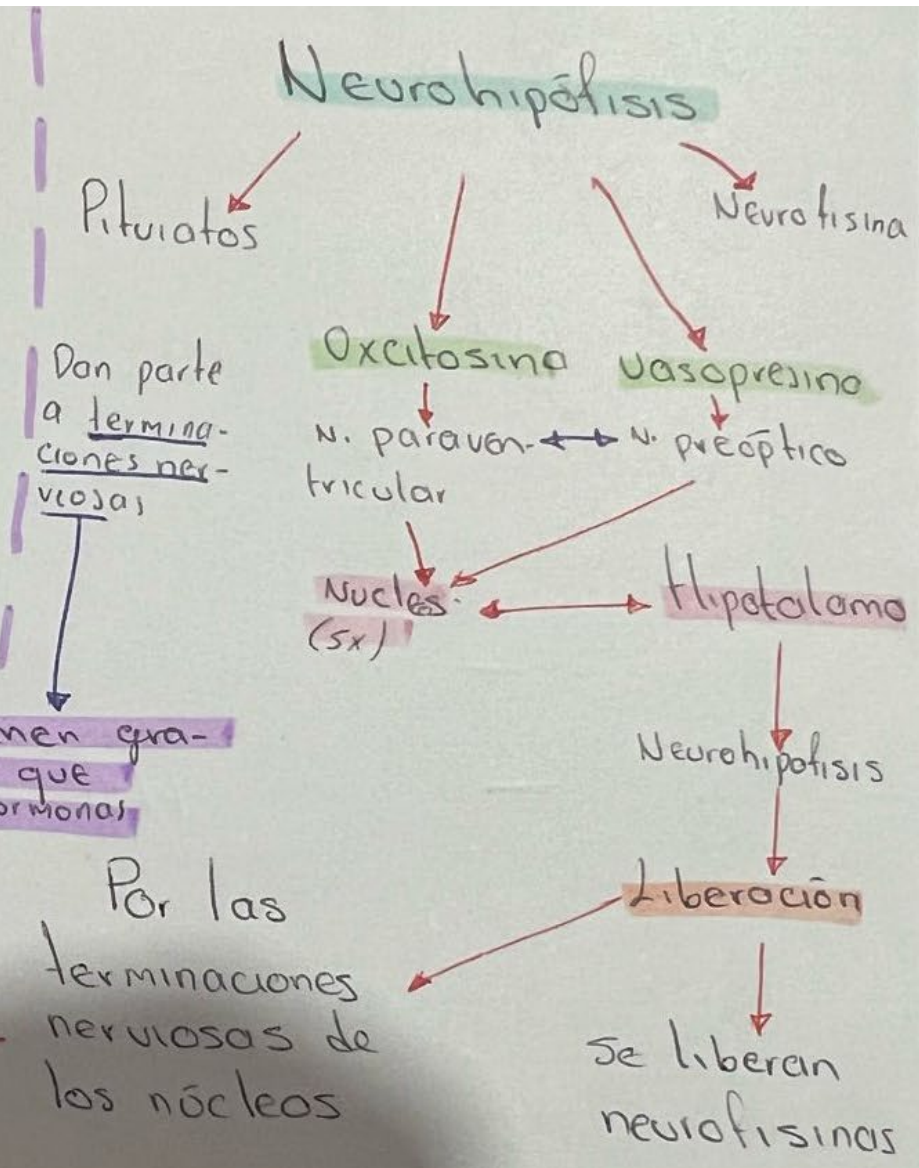 Neurohipófisis
Pituiatos
Neurofisina
Oxcitosina
Vasopresina
Dan parte
a termina-
ciones ner-
viosas
N. paraven-
tricular
N. preóptico
Nucleo
(sx)
Hipotalamo
nen gra-
que
ormonas
Neurohipofisis
Liberación
Por las
terminaciones
nerviosas de
los núcleos
Se liberan
neurofisinas